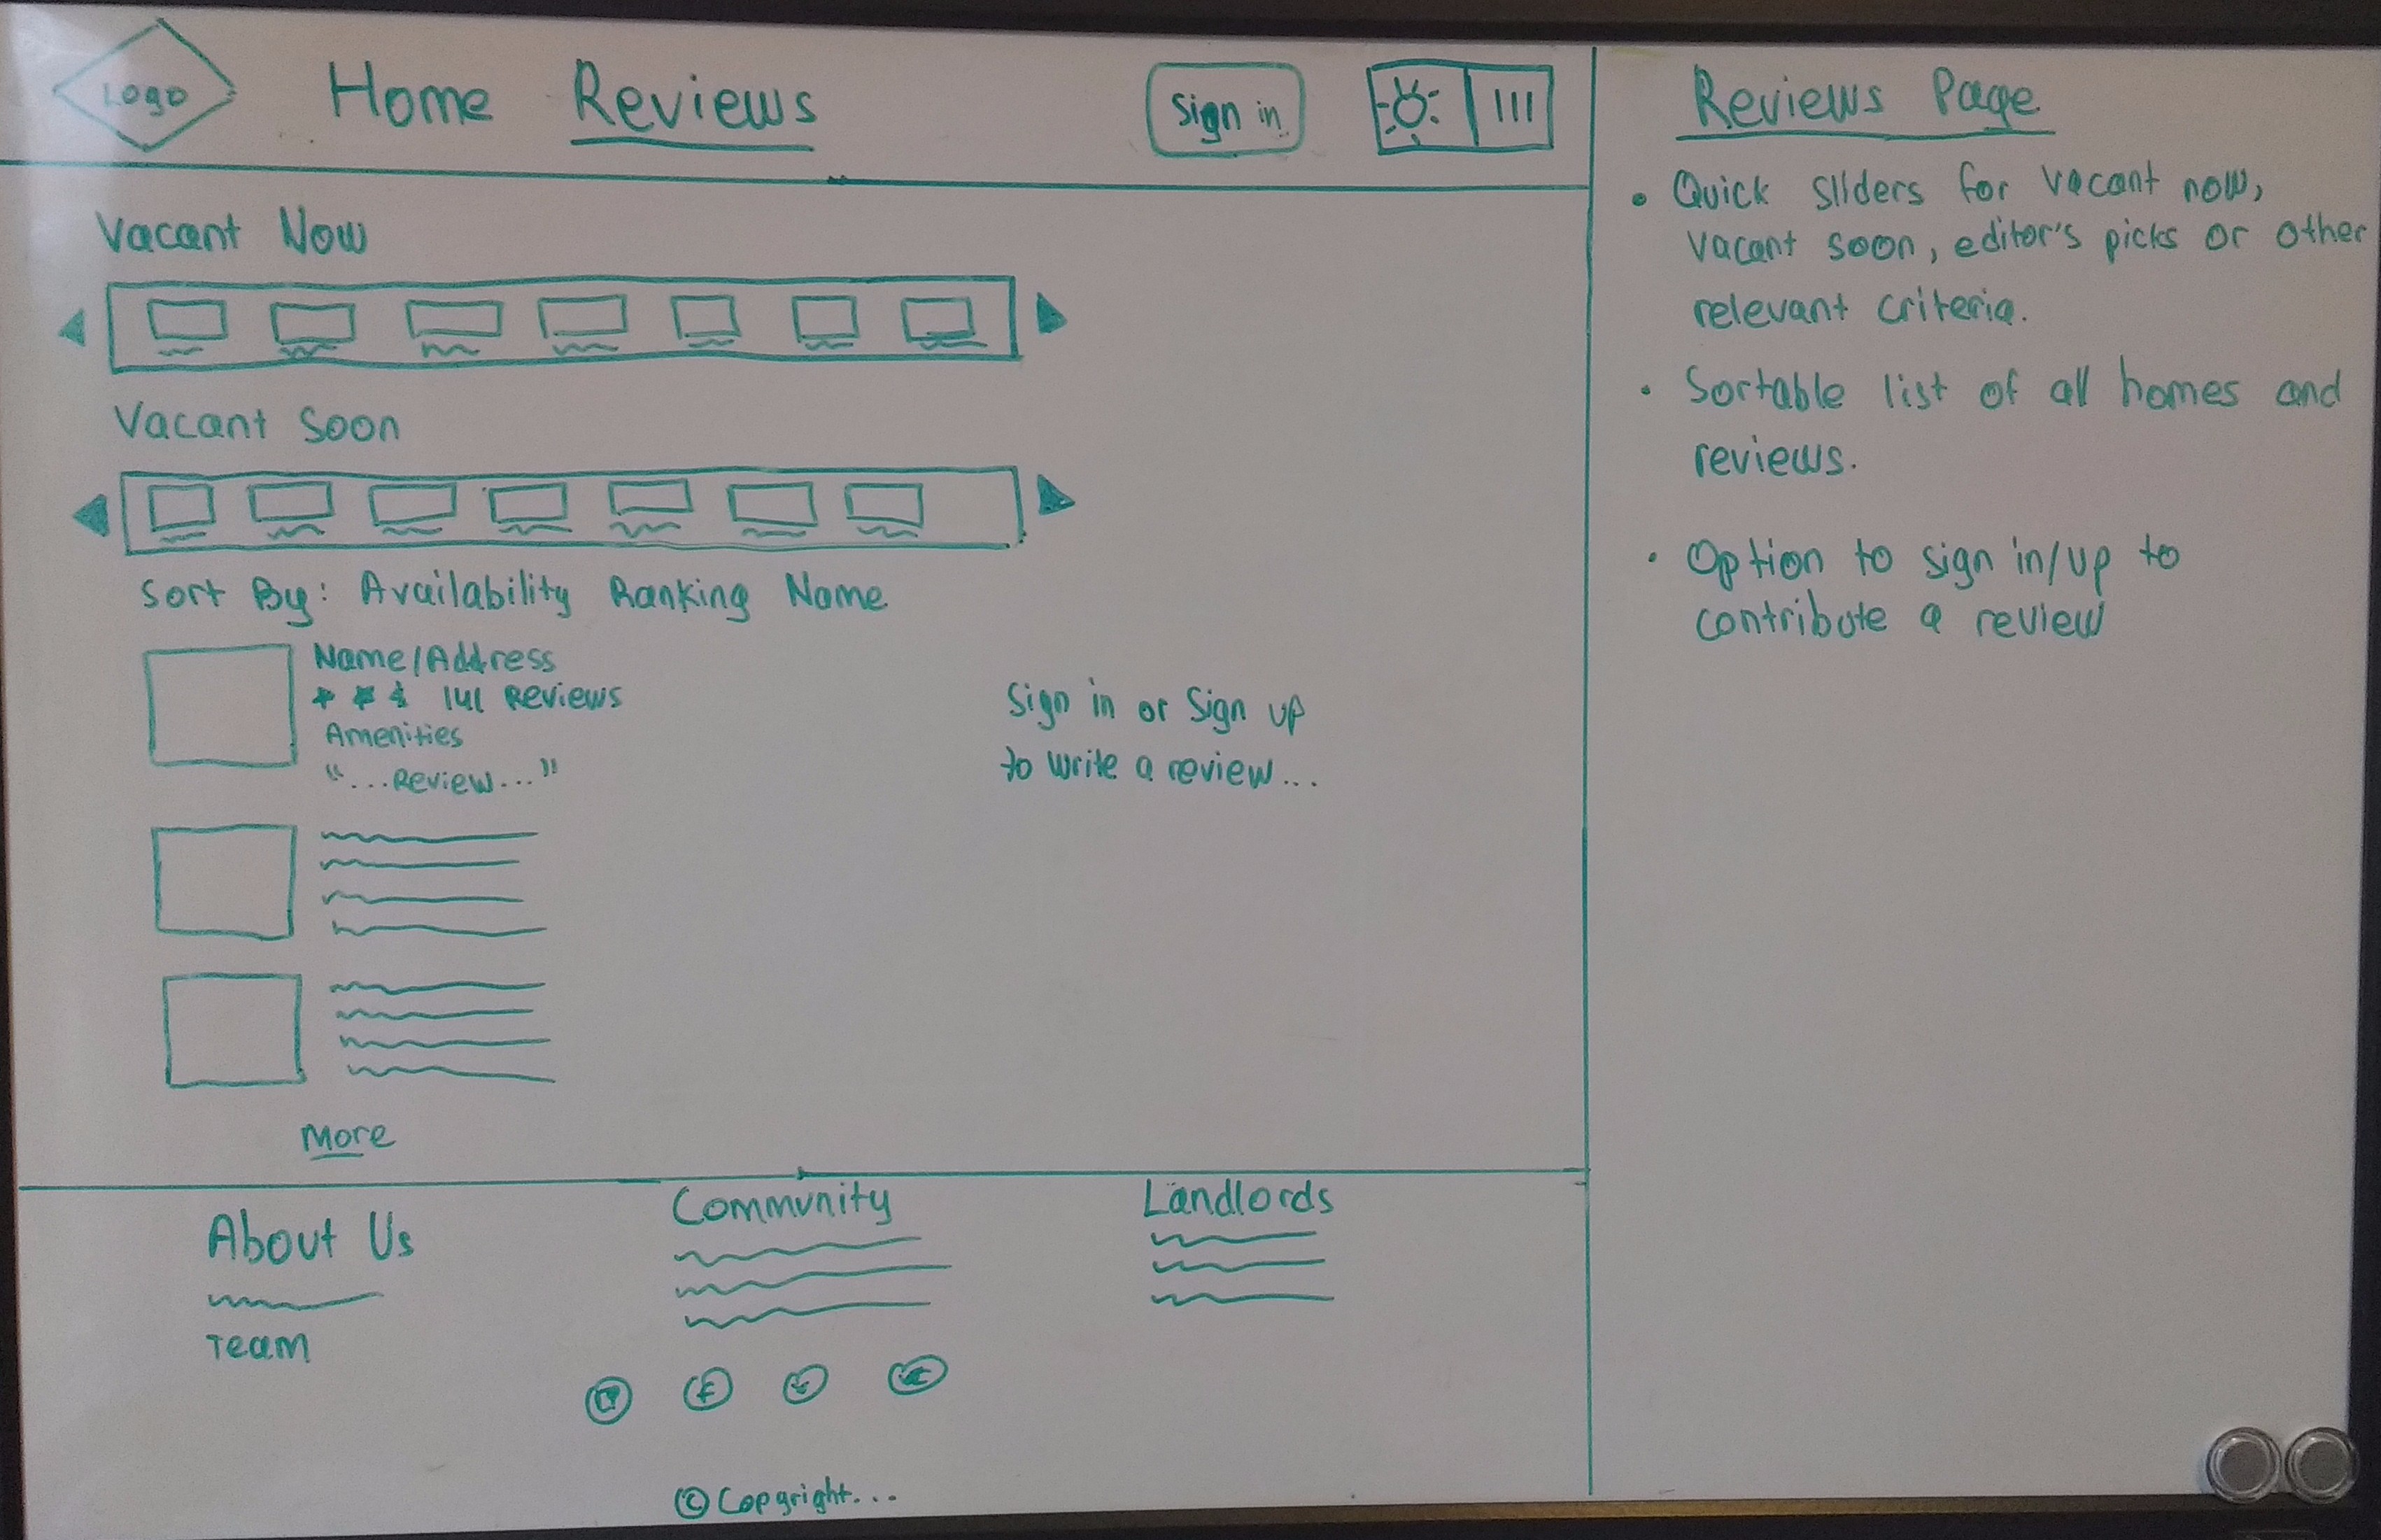 Logo
Home Reviews
Sign in
Vacant Now
Vacant Soon
Sort By: Availability Ranking Name
Name/Address
141 Reviews
Amenities
"...Review..."
Sign in or Sign up
to write a review...
More
About Us
Team
Community
Landlords
© Copyright...
Reviews Page
• Quick sliders for vacant now,
vacant soon, editor's picks or other
relevant criteria.
• Sortable list of all homes and
reviews.
• Option to sign in/up to
contribute a review